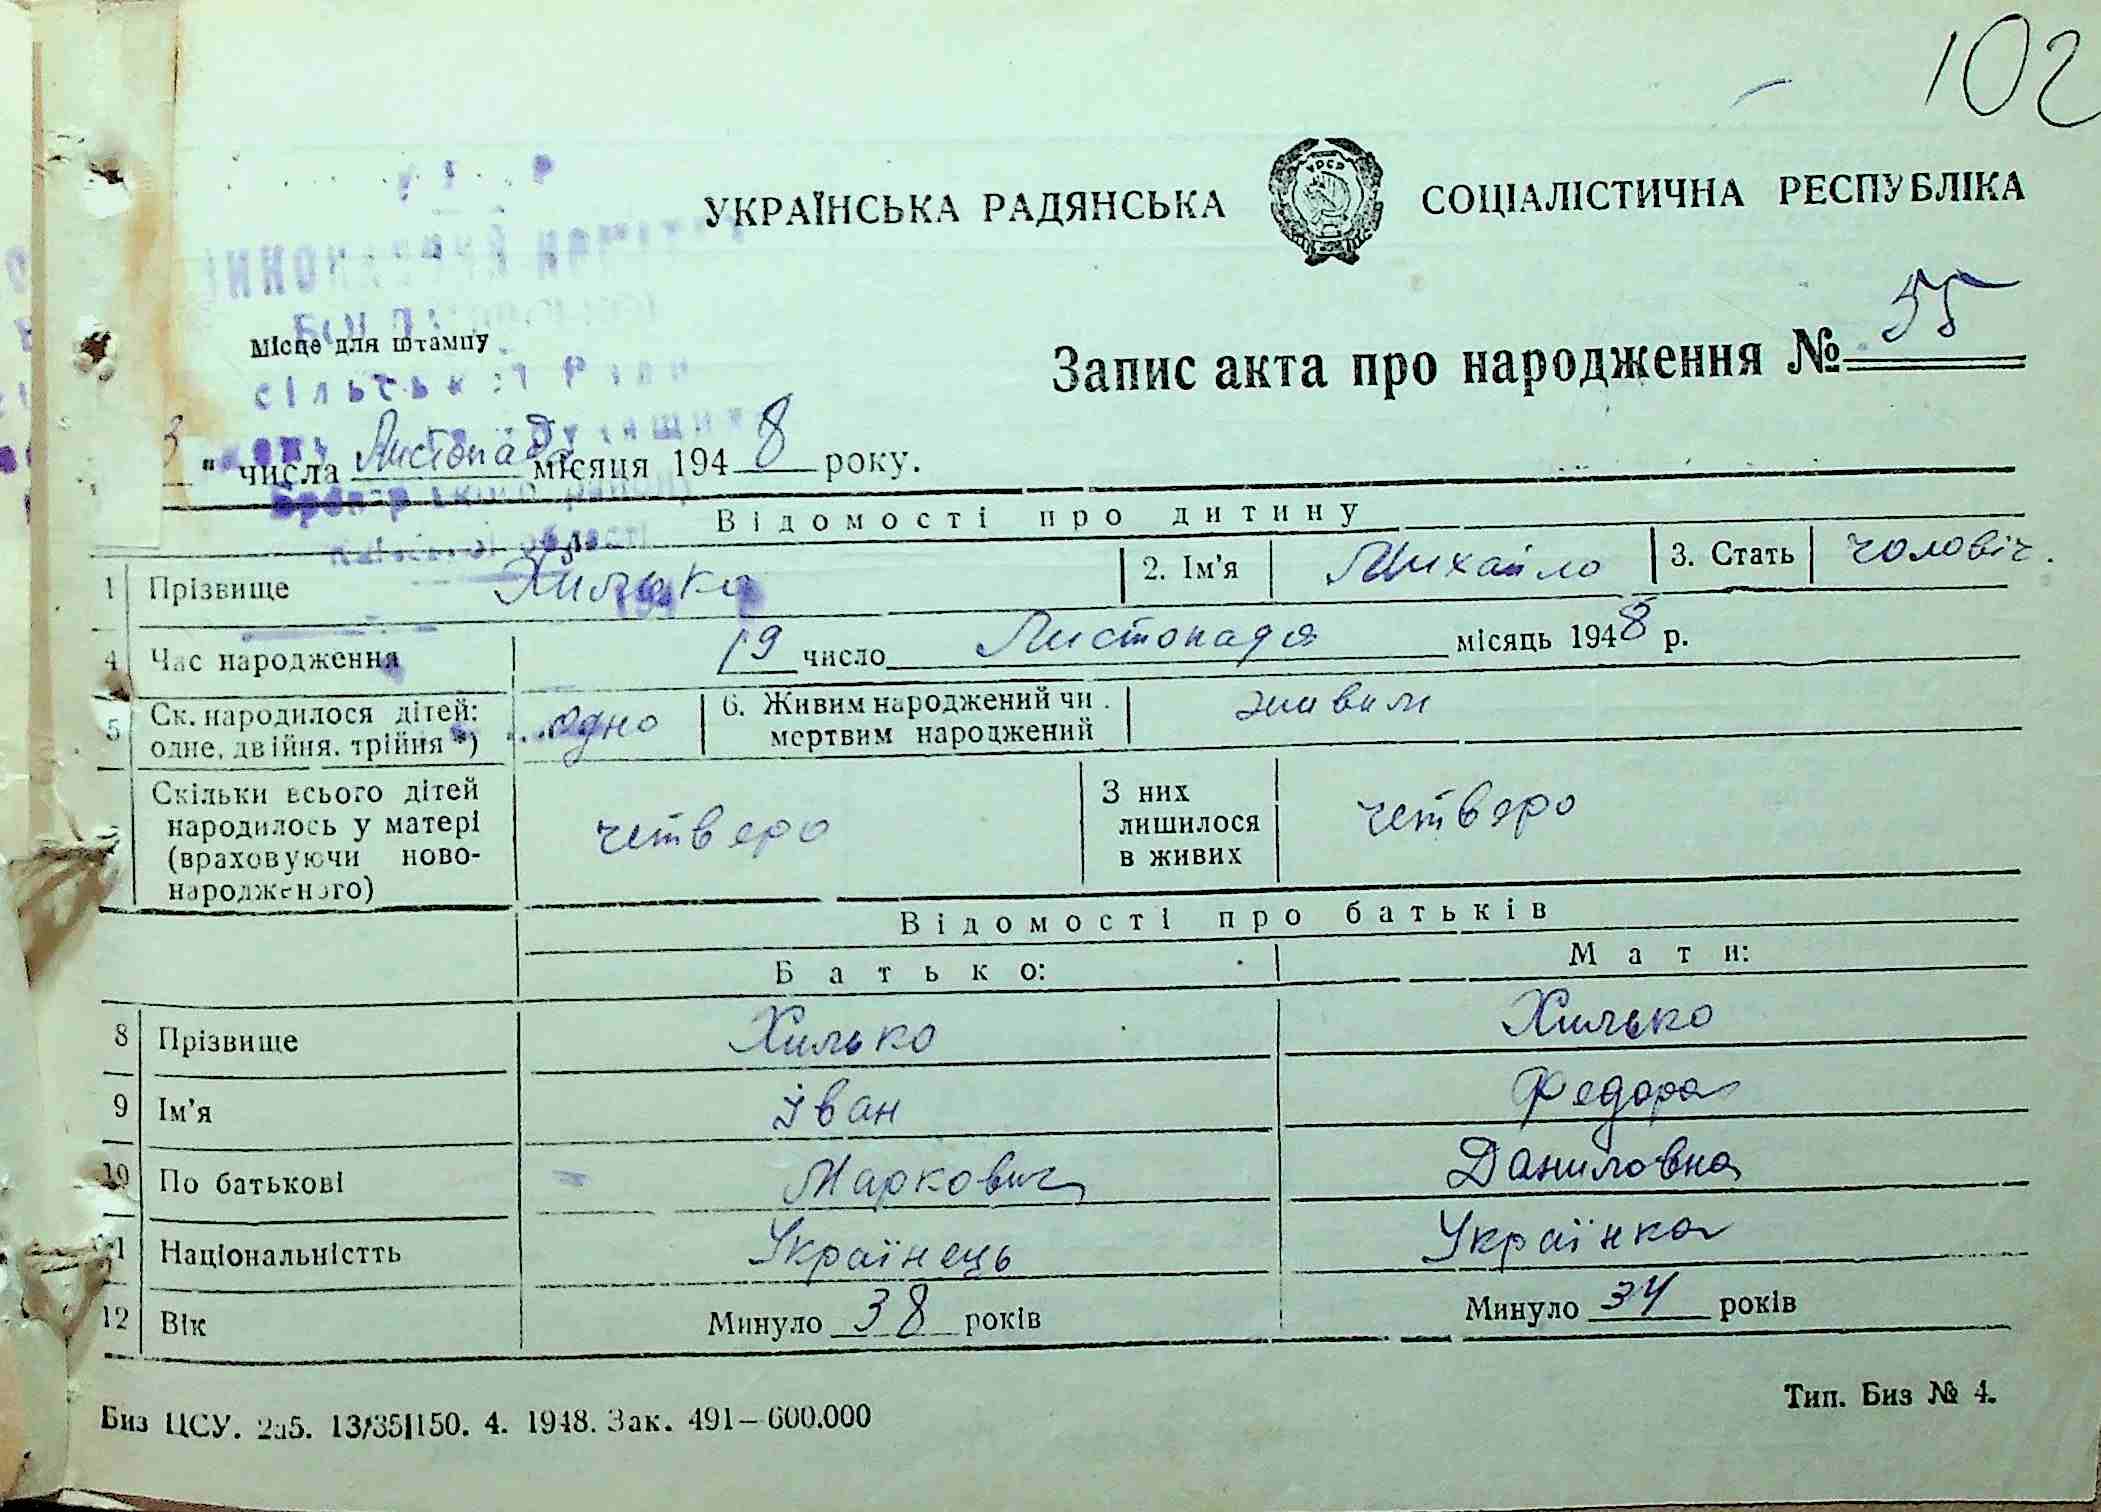 102
УКРАЇНСЬКА РАДЯНСЬКА СОЦІАЛІСТИЧНА РЕСПУБЛІКА
Місце для штампу
сільської Ради
Запис акта про народження № 55
3 " числа Листопада місяця 1948 року.
області
Відомості про дитину
1 Прізвище Хилько 2. Ім'я Михайло 3. Стать чоловіч.
4 Час народження 19 число Листопада місяць 1948 р.
5 Ск. народилося дітей: одне, двійня, трійня *) одно 6. Живим народжений чи мертвим народжений живим
Скільки всього дітей народилось у матері (враховуючи ново-народженого) четверо З них лишилося в живих четверо
Відомості про батьків
Батько: Мати:
8 Прізвище Хилько Хилько
9 Ім'я Іван Федора
10 По батькові Маркович Даниловна
11 Національністть Українець Українка
12 Вік Минуло 38 років Минуло 34 років
Биз ЦСУ. 2а5. 13/35|150. 4. 1948. Зак. 491—600.000
Тип. Биз № 4.